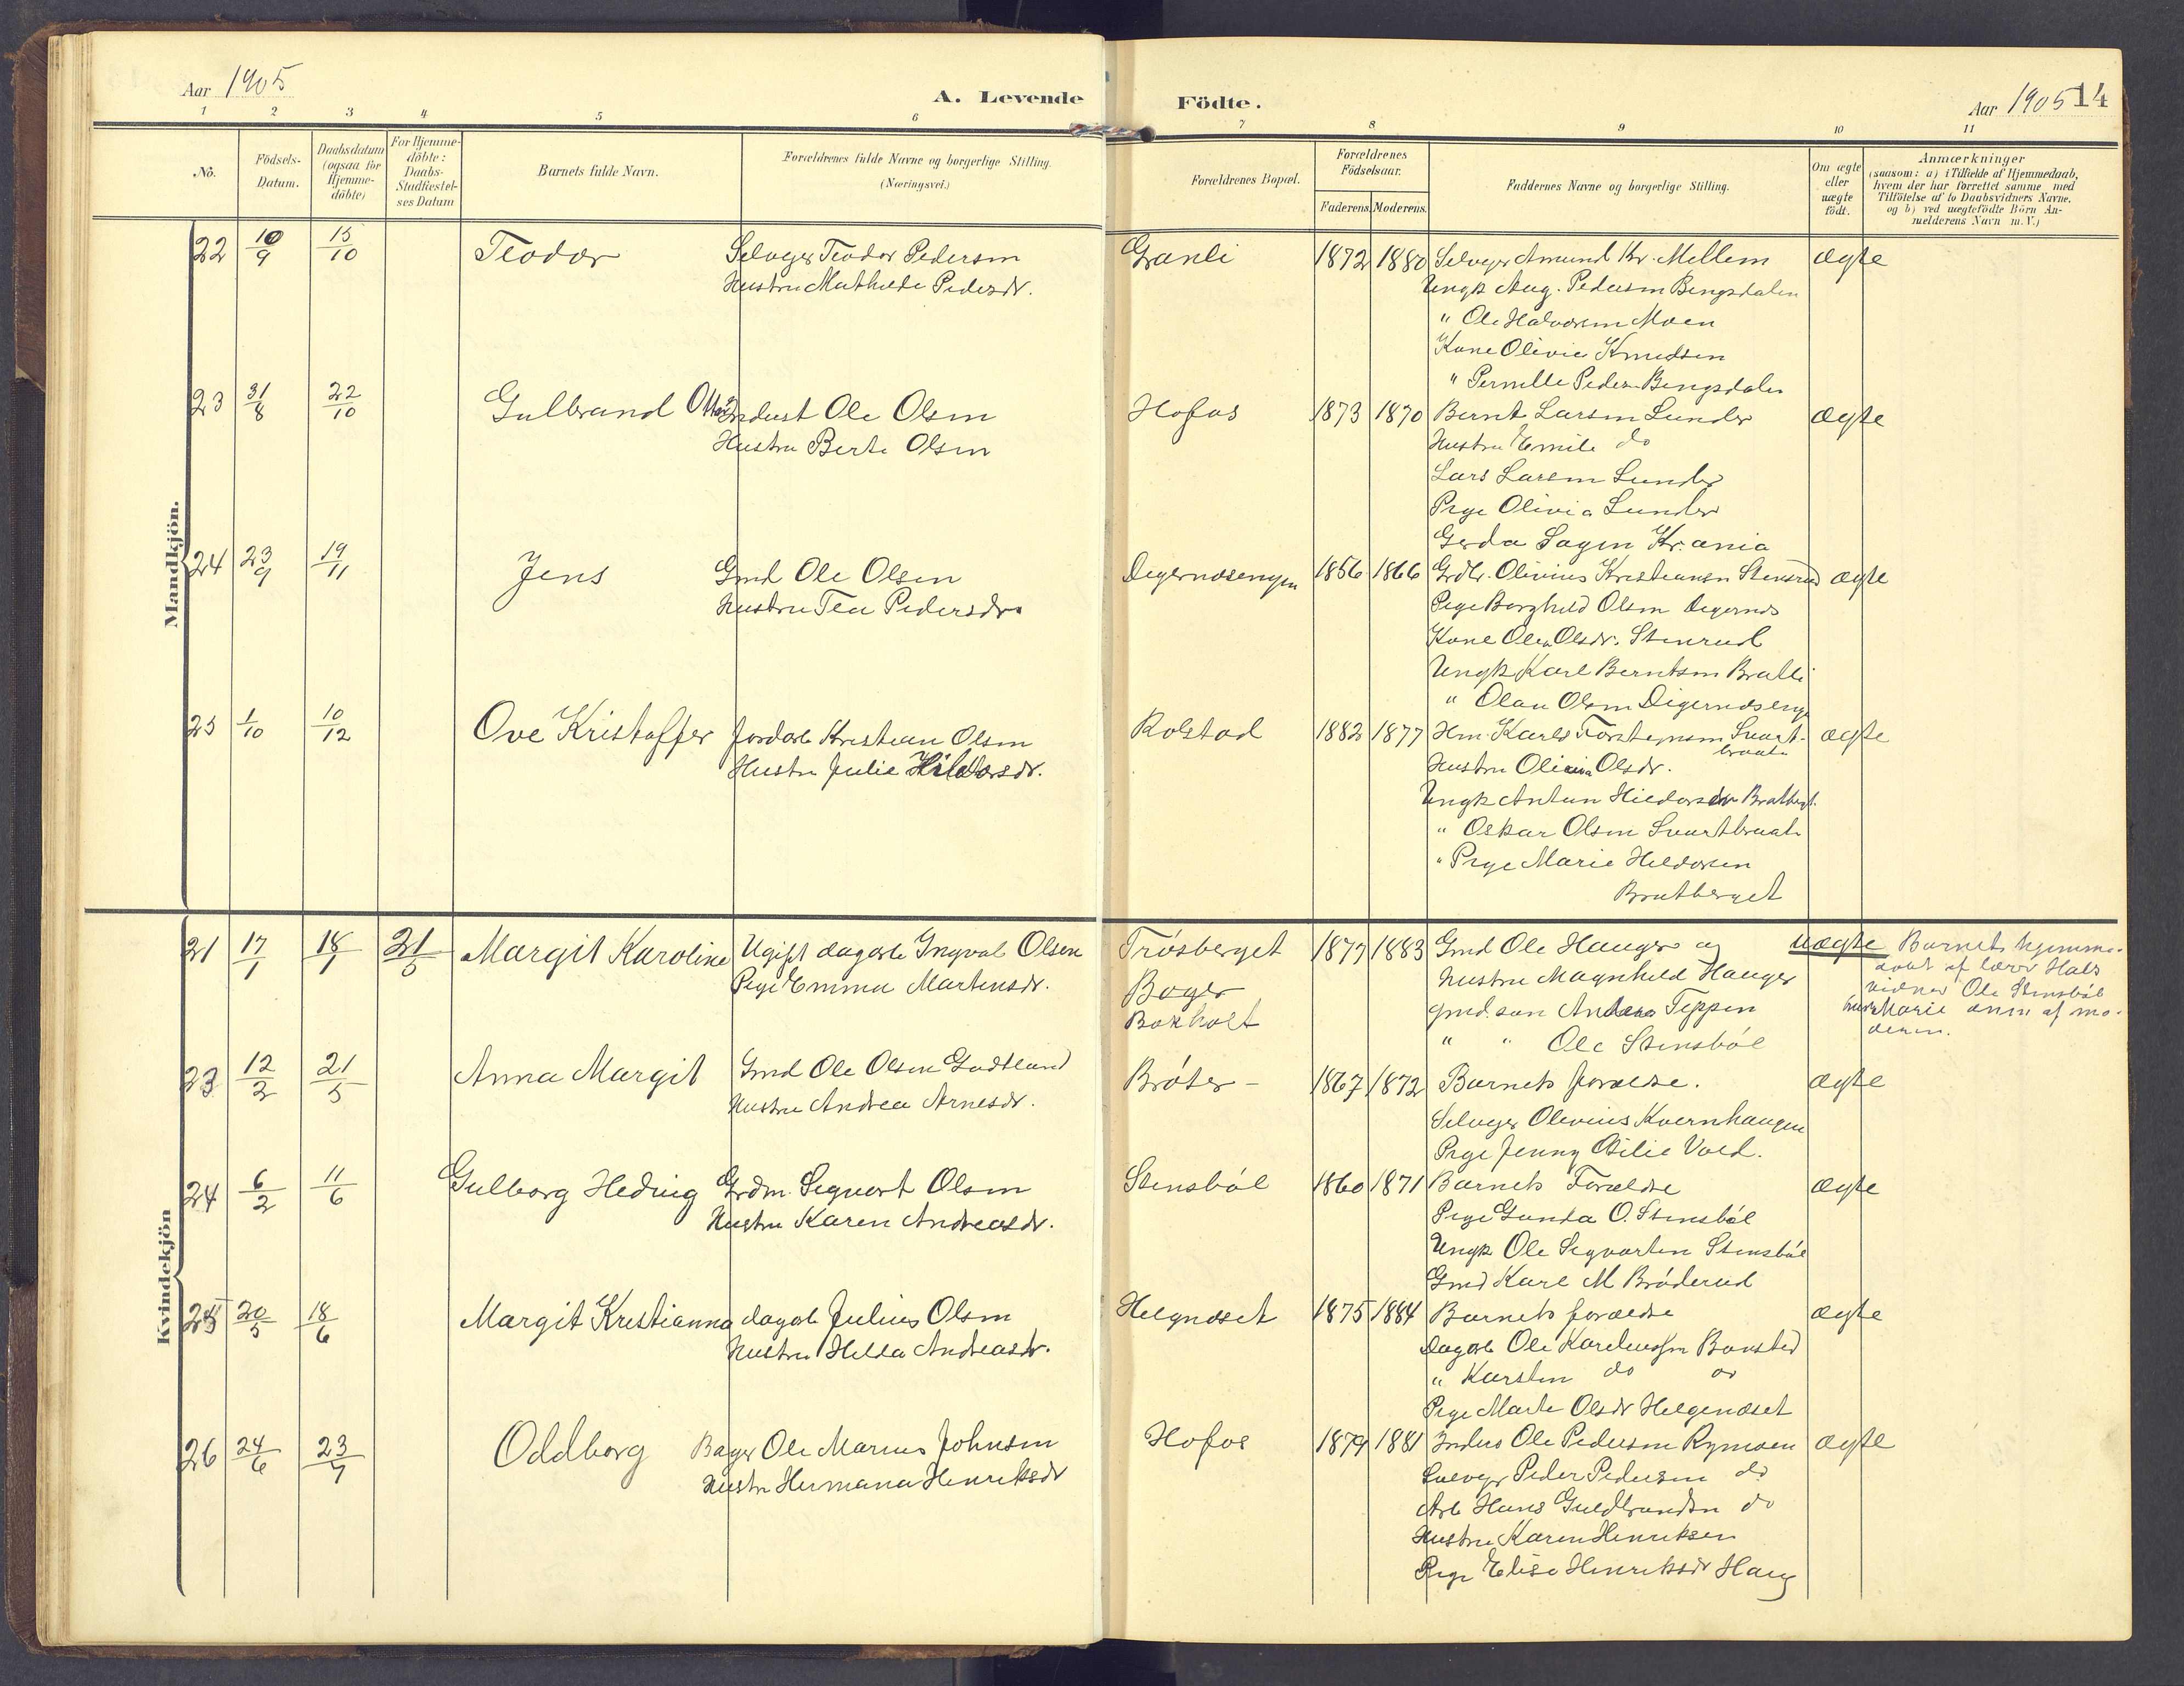 Aar 1905
A. Levende Födte.
Aar 1905 14
1 2 3 4 5 6 7 8 9 10 11
No.
Födsels-Datum.
Daabsdatum (ogsaa for Hjemme-döbte)
For Hjemme-döbte: Daabs-Stadfæstel-ses Datum
Barnets fulde Navn.
Forældrenes fulde Navne og borgerlige Stilling. (Næringsvei.)
Forældrenes Bopæl.
Forældrenes Födselsaar.
Faderens. Moderens.
Faddernes Navne og borgerlige Stilling.
Om ægte eller uægte födt.
Anmærkninger
(saasom: a) i Tilfælde af Hjemmedaab,
hvem der har forrettet samme med
Tilföielse af to Daabsvidners Navne,
og b) ved uægtefödte Börn An-
melderens Navn m. V.)
Mandkjön.
22 10/9 15/10 Teodor Selveger Teodor Pedersen Granli 1872 1880 Selveger Amund Kr. Mellem ægte
Hustru Mathilde Pedersdr. Ungk Aug. Pedersen Bengsdalen
" Ole Halvorsen Moen
Kone Olivie Knudsen
" Pernille Peders. Bengsdalen
23 31/8 22/10 Gulbrand Otto Indust Ole Olsen Hofos 1873 1870 Bernt Larsen Lunder ægte
Hustru Berte Olsen Hustru Emile do
Lars Larsen Lunder
Pige Olivia Lunder
Gerda Sagen Kr.ania
24 23/9 19/11 Jens Gmd Ole Olsen Degernæsengen 1856 1866 Grdbr. Olivius Kristiansen Stensrud ægte
Hustru Tea Pedersdr. Pige Borghild Olsen Degernes
Kone Olea Olsdr. Stenrud
Ungk Karl Berntsen Bralli
" Olau Olsen Digernæseng
25 1/10 10/12 Ove Kristoffer Jordarb Kristian Olsen Rolstad 1882 1877 Hm. Karls Torstensen Svart-braaten ægte
Hustru Julie Hildorsdr. Hustru Olivia Olsdr.
Ungk Anton Hildorsen Bratberget
" Oskar Olsen Svartbraaten
" Pige Marie Heldorsen
Bratberget
Kvindekjön
21 17/1 18/1 21/5 Margit Karoline Ugift dagarb Ingval Olsen Trøsberget 1877 1883 Gmd Ole Hauger og uægte Barnet hjemme-
Pige Emma Martinsdr. Bager Hustru Magnhild Hauger døbt af lærer Hals
Bakholt gmd.søn Anders Teppen vidner Ole Stensbøl
" " Ole Stensbøl Marie anm af mo-
deren.
23 12/2 21/5 Anna Margit Gmd Ole Olsen Godtland Brøter - 1867 1872 Barnets forældre. ægte
Hustru Andrea Arnesdr. Selveger Olivius Kvernhaugen
Pige Jenny Otilie Vold.
24 6/2 11/6 Gulborg Hedvig Grdm. Sigvart Olsen Stensbøl 1860 1871 Barnets Forældre ægte
Hustru Karen Andreasdr. Pige Gunda O. Stensbøl
Ungk Ole Sigvartsen Stensbøl
Gmd Karl M Brøderud
25 20/5 18/6 Margit Kristianna dagarb Julius Olsen Helgnæset 1875 1884 Barnets forældre ægte
Hustru Hilda Andreasdr. Dagarb Ole Kareliussen Bonsted
" Karsten do do
Pige Marte Olsdr Helgenæset
26 24/6 23/7 Oddborg Bager Ole Marius Johnsen Hofos 1879 1881 Indus Ole Pedersen Rymoen ægte
Hustru Hermana Henriksdr Selveger Peder Pedersen do
Arb Hans Guldbrandsen do
Hustru Karen Henriksen
Pige Elise Henriksdr Haug